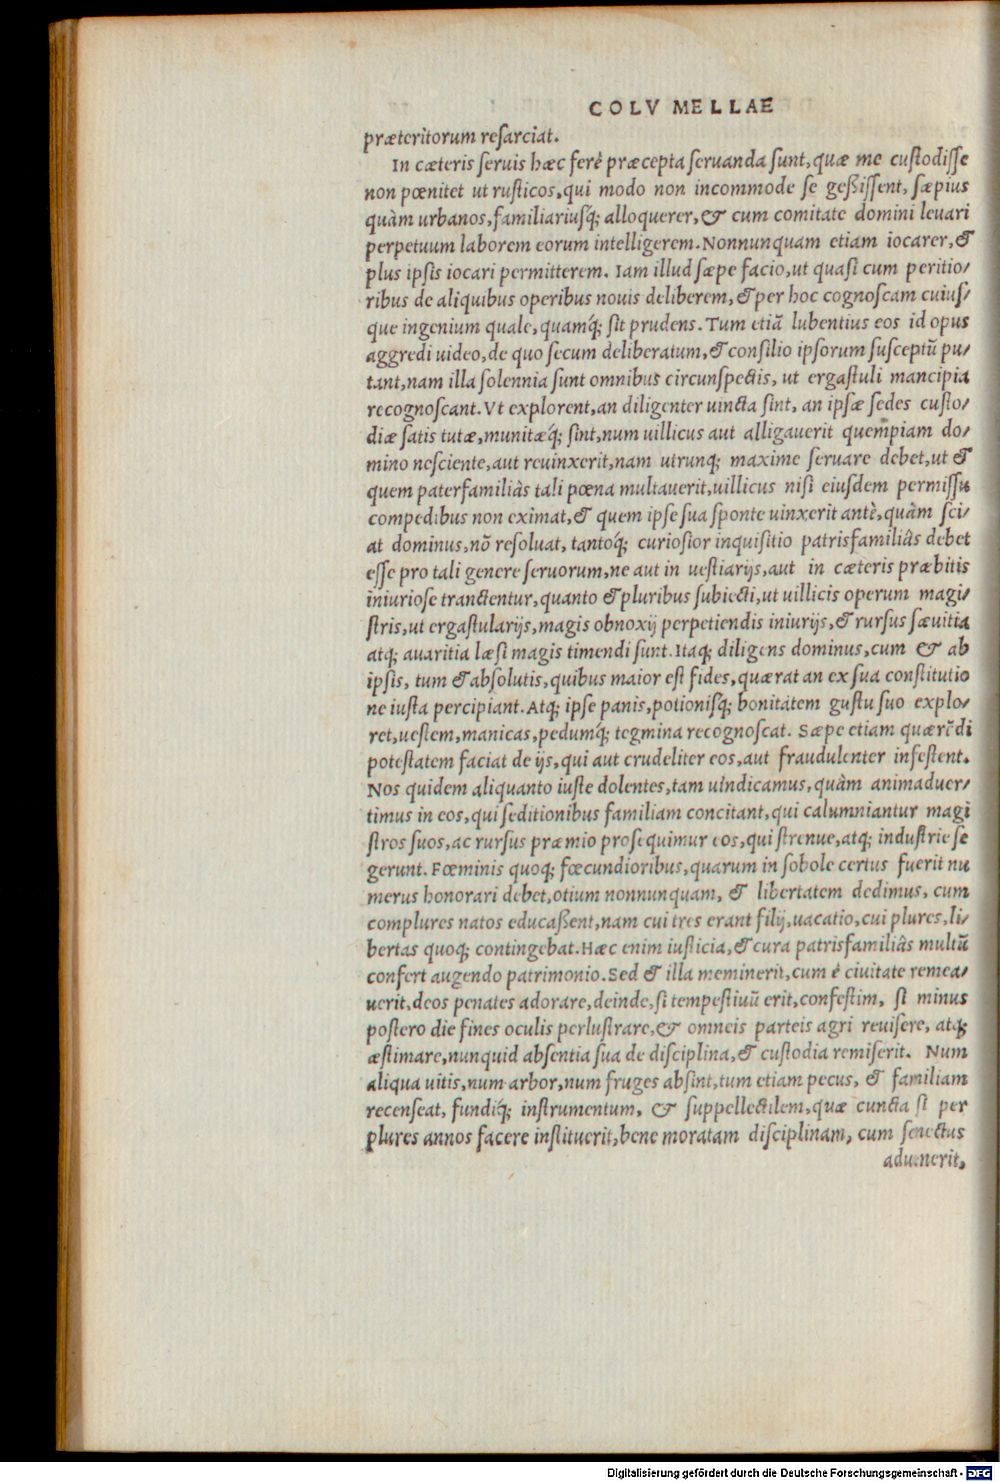 COLV MELLAE
præteritorum resarciat.
In cæteris seruis hæc ferè præcepta seruanda sunt, quæ me custodisse
non pœnitet ut rusticos, qui modo non incommode se geßissent, sæpius
quàm urbanos, familiariusq́; alloquerer, & cum comitate domini leuari
perpetuum laborem eorum intelligerem. Nonnunquam etiam iocarer, &
plus ipsis iocari permitterem. Iam illud sæpe facio, ut quasi cum peritio/
ribus de aliquibus operibus nouis deliberem, & per hoc cognoscam cuius/
que ingenium quale, quamq́; sit prudens. Tum etiã lubentius eos id opus
aggredi uideo, de quo secum deliberatum, & consilio ipsorum susceptũ pu/
tant, nam illa solennia sunt omnibus circunspectis, ut ergastuli mancipia
recognoscant. Vt explorent, an diligenter uincta sint, an ipsæ sedes custo/
diæ satis tutæ, munitæq́; sint, num uillicus aut alligauerit quempiam do/
mino nesciente, aut reuinxerit, nam utrunq; maxime seruare debet, ut &
quem paterfamiliâs tali pœna multauerit, uillicus nisi eiusdem permissu
compedibus non eximat, & quem ipse sua sponte uinxerit antè, quàm sci/
at dominus, nõ resoluat, tantoq́; curiosior inquisitio patrisfamiliâs debet
esse pro tali genere seruorum, ne aut in uestiarijs, aut in cæteris præbitis
iniuriose tranctentur, quanto & pluribus subiecti, ut uillicis operum magi/
stris, ut ergastularijs, magis obnoxij perpetiendis iniurijs, & rursus sæuitia
atq; auaritia læsi magis timendi sunt. Itaq; diligens dominus, cum & ab
ipsis, tum & absolutis, quibus maior est fides, quærat an ex sua constitutio
ne iusta percipiant. Atq; ipse panis, potionisq́; bonitatem gustu suo explo/
ret, uestem, manicas, pedumq́; tegmina recognoscat. Sæpe etiam quærẽdi
potestatem faciat de ijs, qui aut crudeliter eos, aut fraudulenter infestent.
Nos quidem aliquanto iuste dolentes, tam uindicamus, quàm animaduer/
timus in eos, qui seditionibus familiam concitant, qui calumniantur magi
stros suos, ac rursus præmio prosequimur eos, qui strenue, atq; industrie se
gerunt. Fœminis quoq; fœcundioribus, quarum in sobole certus fuerit nu
merus honorari debet, otium nonnunquam, & libertatem dedimus, cum
complures natos educaßent, nam cui tres erant filij, uacatio, cui plures, li/
bertas quoq; contingebat. Hæc enim iusticia, & cura patrisfamiliâs multũ
confert augendo patrimonio. Sed & illa meminerit, cum è ciuitate remea/
uerit, deos penates adorare, deinde, si tempestiuũ erit, confestim, si minus
postero die fines oculis perlustrare, & omneis parteis agri reuisere, atq;
æstimare, nunquid absentia sua de disciplina, & custodia remiserit. Num
aliqua uitis, num arbor, num fruges absint, tum etiam pecus, & familiam
recenseat, fundiq́; instrumentum, & suppellectilem, quæ cuncta si per
plures annos facere instituerit, bene moratam disciplinam, cum senectus
aduenerit,
Digitalisierung gefördert durch die Deutsche Forschungsgemeinschaft - DFG